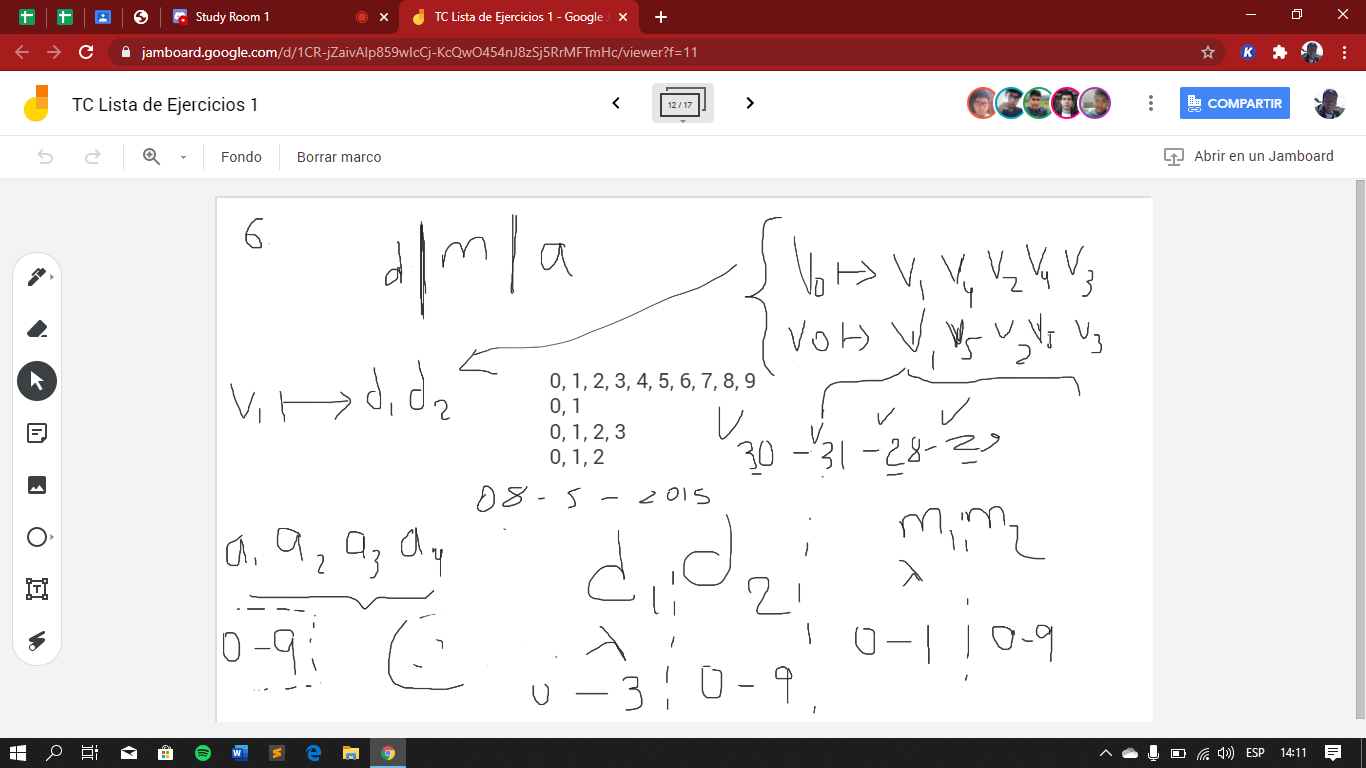 Study Room 1
TC Lista de Ejercicios 1 - Google J
jamboard.google.com/d/1CR-jZaivAlp859wIcCj-KcQwO454nJ8zSj5RrMFTmHc/viewer?f=11
TC Lista de Ejercicios 1
12 / 17
COMPARTIR
Fondo
Borrar marco
Abrir en un Jamboard
6.
d | m | a
V0 ↦ V1 V4 V2 V4 V3
V0 ↦ V1 V5 V2 V5 V3
V1 ↦ d1 d2
0, 1, 2, 3, 4, 5, 6, 7, 8, 9
0, 1
0, 1, 2, 3
0, 1, 2
30 - 31 - 28 - 29
08 - 5 - 2015
a1 a2 a3 a4
d1 d2
m1 m2
λ
λ
0 - 9
0 - 3 | 0 - 9
0 - 1 | 0 - 9
ESP
14:11